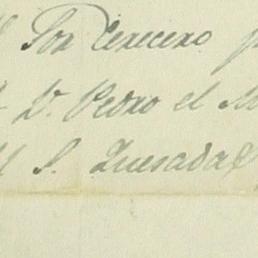 Por Terecero
D. Pedro el
S. Quesada